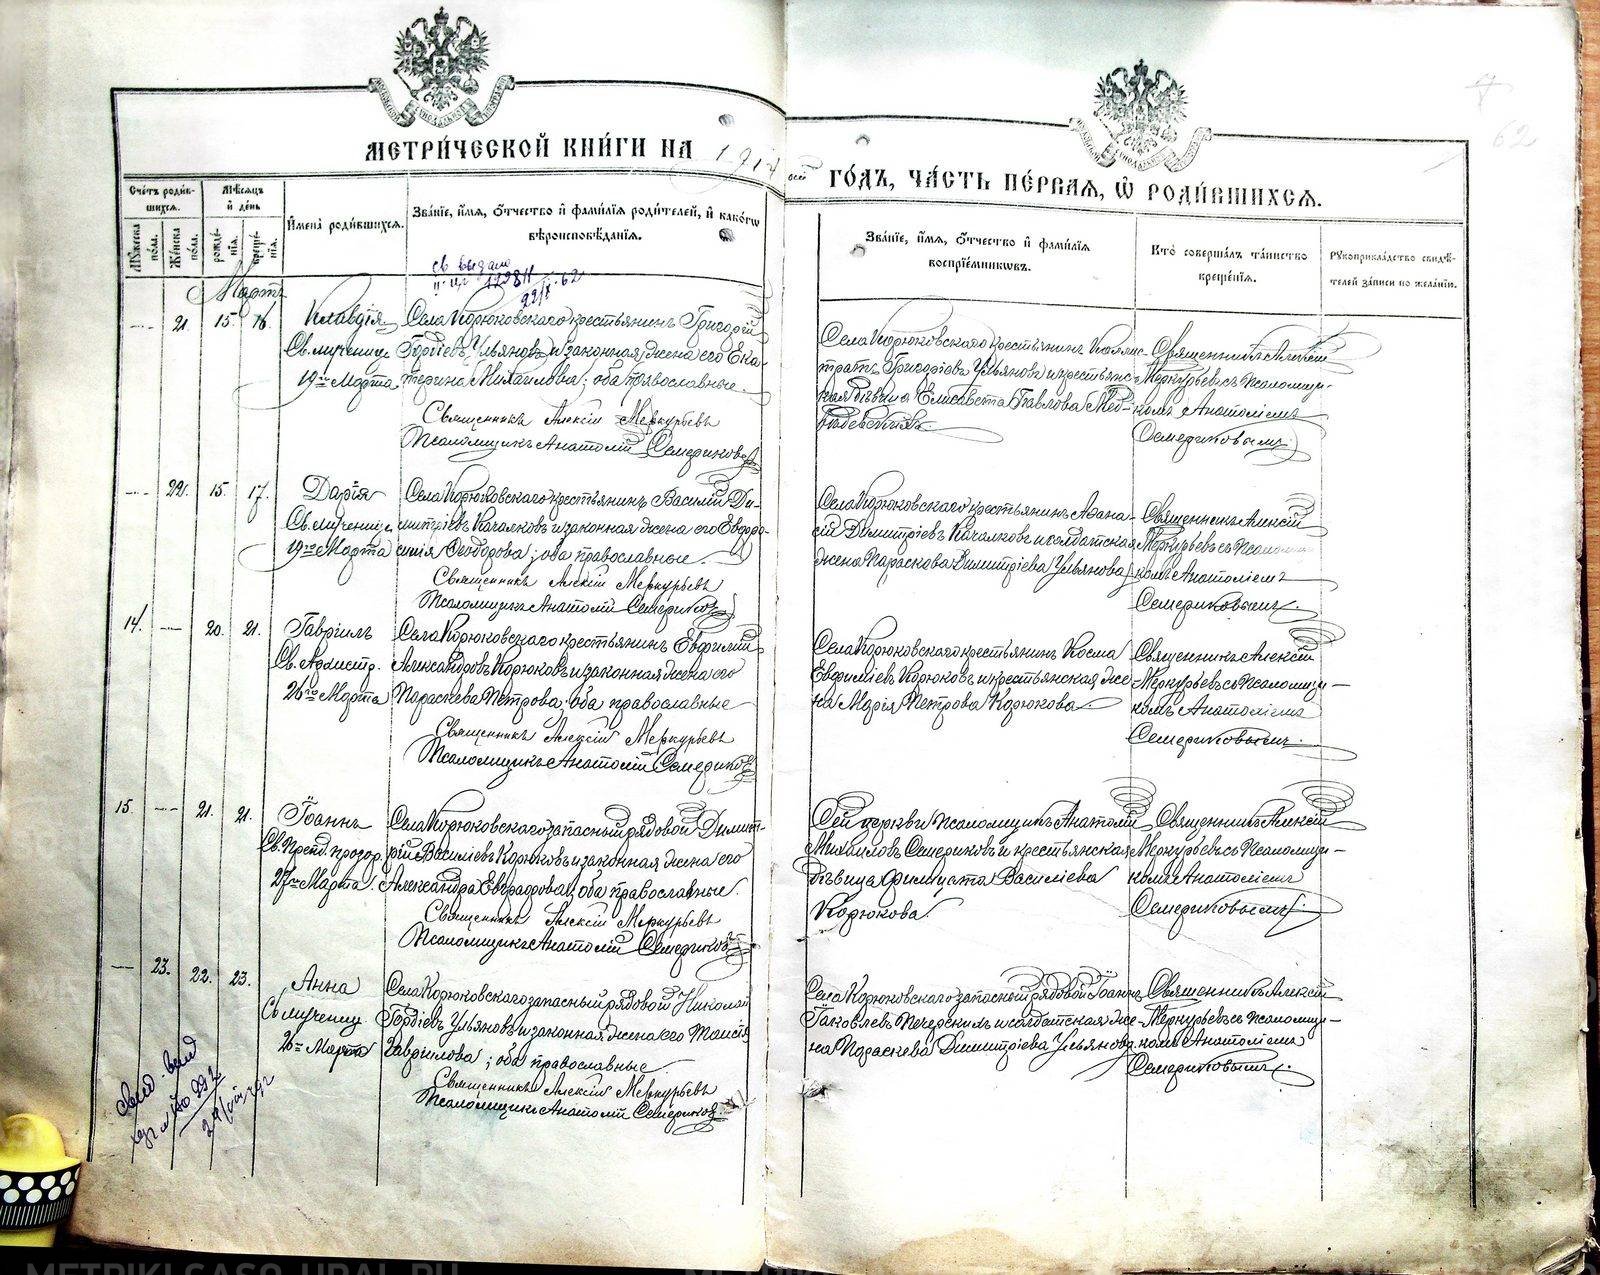 МЕТРИ́ЧЕСКОЙ КНИ́ГИ НА 1914 ый ГО́ДЪ, ЧА́СТЬ ПЕ́РВАЯ, Ѽ РОДИ́ВШИХСЯ.
62
Сче́тъ роди́в-
шихся.
Мѣ́сяцъ
и де́нь
Мꙋ́жеска по́ла.
Же́нска по́ла.
рожде́-
нія.
креще́-
нія.
И́мена роди́вшихся.
Зва́ніе, и́мя, ѻ́тчество и фами́лія роди́телей, и како́гѡ
вѣроисповѣ́данія.
Зва́ніе, и́мя, ѻ́тчество и фами́лія
воспріе́мникѡвъ.
Кто̀ соверша́лъ та́инство
креще́нія.
Рꙋкоприкла́дство свидѣ́-
телей за́писи по жела́нію.
св выдано
22/X-62
Мартъ
21. 15. 16.
Клавдія
Св. мученицы
19го Марта
Села Корюковскаго крестьянинъ Григорій
Гордіевъ Ульяновъ и законная жена его Ека-
терина Михаилова; оба православные.
Священникъ Алексій Меркурьевъ
Псаломщикъ Анатолій Семериковъ
Села Корюковскаго крестьянинъ Калис-
тратъ Григоріевъ Ульяновъ и крестьянс-
кая дѣвица Елисавета Павлова
Священникъ Алексій
Меркурьевъ съ псаломщи-
комъ Анатоліемъ
Семериковымъ.
22. 15. 17.
Дарія
Св. мученицы
19го Марта
Села Корюковскаго крестьянинъ Василій Ди-
митріевъ Качалковъ и законная жена его Евдо-
кія Ѳеодорова; оба православные.
Священникъ Алексій Меркурьевъ
Псаломщикъ Анатолій Семериковъ
Села Корюковскаго крестьянинъ Аѳана-
сій Димитріевъ Качалковъ и солдатская
жена Параскева Димитріева Ульянова.
Священникъ Алексій
Меркурьевъ съ псаломщи-
комъ Анатоліемъ
Семериковымъ.
14. 20. 21.
Гавріилъ
Св. Архистр.
26го Марта
Села Корюковскаго крестьянинъ Евфимій
Александровъ Корюковъ и законная жена его
Параскева Петрова; оба православные
Священникъ Алексій Меркурьевъ
Псаломщикъ Анатолій Семериковъ
Села Корюковскаго крестьянинъ Косма
Евфиміевъ Корюковъ и крестьянская же-
на Марія Петрова Корюкова.
Священникъ Алексій
Меркурьевъ съ псаломщи-
комъ Анатоліемъ
Семериковымъ.
15. 21. 21.
Іоаннъ
Св. Преп. прозор.
27го Марта.
Села Корюковскаго запасный рядовой Димит-
рій Василіевъ Корюковъ и законная жена его
Александра Евграфова; оба православные.
Священникъ Алексій Меркурьевъ
Псаломщикъ Анатолій Семериковъ
Сей церкви псаломщикъ Анатолій
Михаиловъ Семериковъ и крестьянская
дѣвица Филицата Василіева
Корюкова.
Священникъ Алексій
Меркурьевъ съ псаломщи-
комъ Анатоліемъ
Семериковымъ.
23. 22. 23.
Анна
Св мучениц.
26го Марта
Села Корюковскаго запасный рядовой Николай
Гордіевъ Ульяновъ и законная жена его Таисія
Гавріилова; оба православные
Священникъ Алексій Меркурьевъ
Псаломщикъ Анатолій Семериковъ
Села Корюковскаго запасный рядовой Іоаннъ
Іаковлевъ Печеркинъ и солдатская же-
на Параскева Димитріева Ульянова.
Священникъ Алексій
Меркурьевъ съ псаломщи-
комъ Анатоліемъ
Семериковымъ.